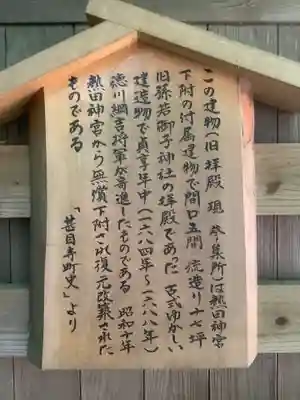 この建物(旧拝殿 現 参集所)は熱田神宮
下附の付属建物で間口五間 流造り十七坪
旧孫若御子神社の拝殿であった 古式ゆかしい
建造物で貞享年中(一六八四年〜一六八八年)
徳川綱吉将軍が寄進したものである 昭和十年
熱田神宮から無償下附され復元改築された
ものである
「甚目寺町史」より